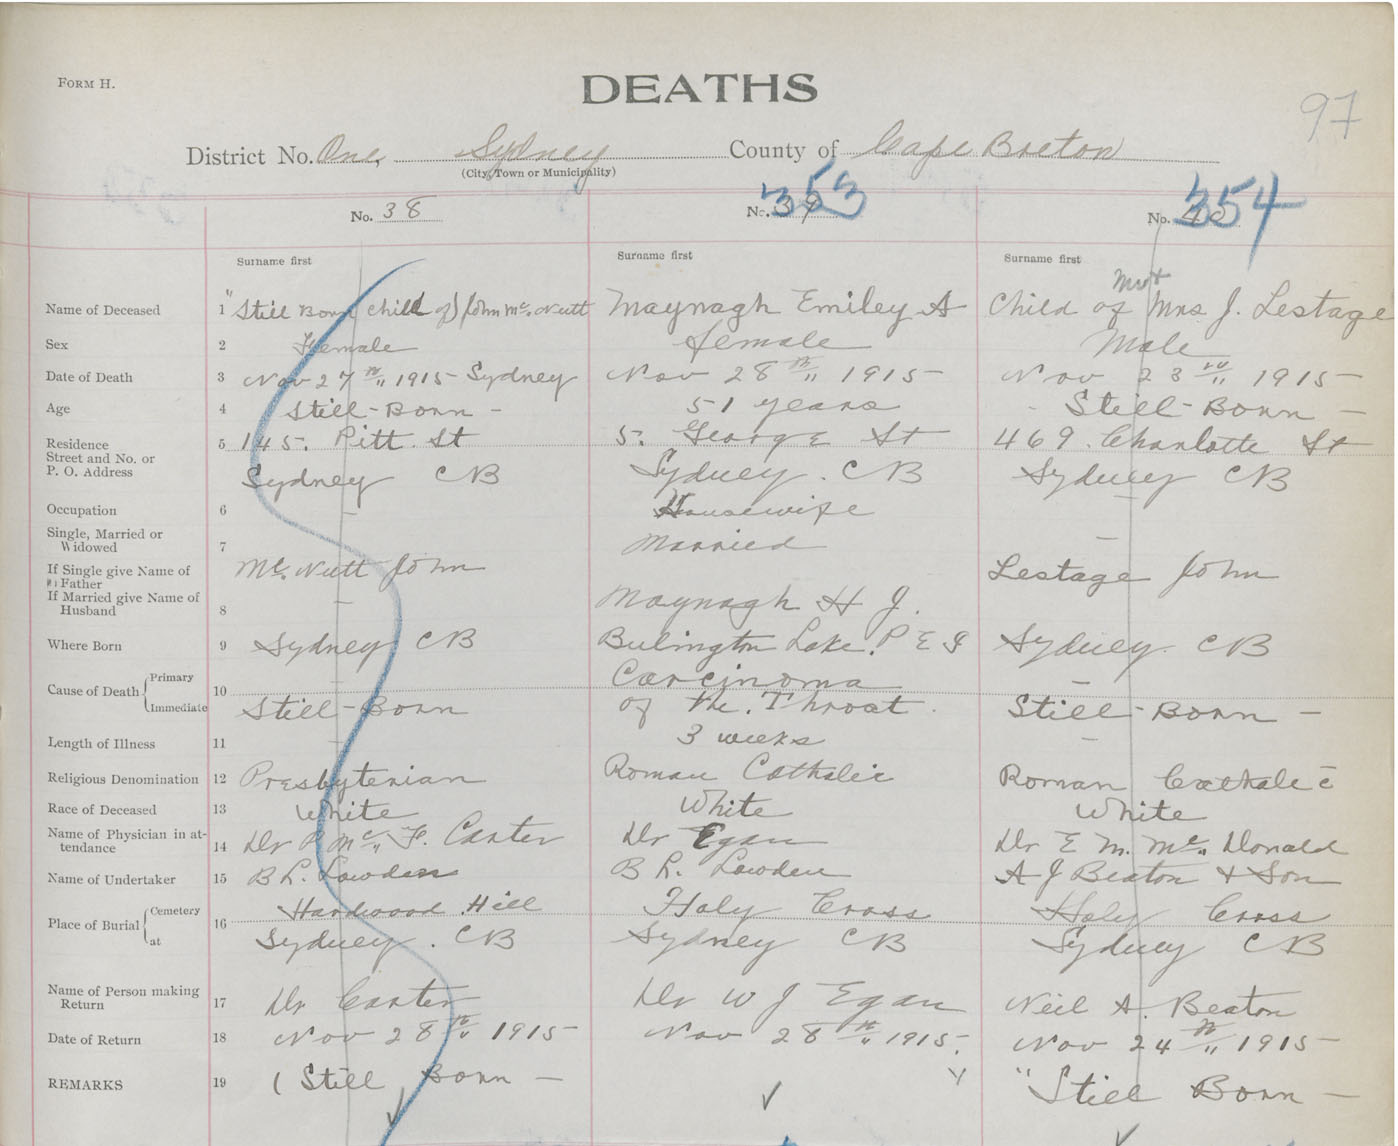 FORM H.
DEATHS
97
District No. One, Sydney County of Cape Breton
(City, Town or Municipality)
No. 38
No. 39 353
No. 40 354
Surname first
Surname first
Surname first
Name of Deceased 1 "Still Born child of) John Mc. Nutt
Maynagh Emiley A
Child of Mr & Mrs J. Lestage
Sex 2 Female
female
Male
Date of Death 3 Nov 27 th 1915 - Sydney
Nov 28 th 1915 -
Nov 23 rd 1915 -
Age 4 Still-Born -
51 years
- Still-Born -
Residence
Street and No. or
P. O. Address
5 145. Pitt. St
Sydney CB
5. George St
Sydney. CB
469. Charlotte St
Sydney CB
Occupation 6 -
Housewife
-
Single, Married or
Widowed
7
Married
-
If Single give Name of
Father
Mc. Nutt John
Lestage John
If Married give Name of
Husband
8 -
Maynagh H J.
Where Born 9 Sydney CB
Bulington Lake. P E I
Sydney. CB
Cause of Death { Primary
Immediate
10
Still-Born
Carcinoma
of the. Throat.
-
Still-Born -
Length of Illness 11 -
3 weeks
-
Religious Denomination 12 Presbyterian
Roman Catholic
Roman Catholic
Race of Deceased 13 White
White
White
Name of Physician in at-
tendance
14 Dr P Mc. F. Carter
Dr Egan
Dr E M. Mc. Donald
Name of Undertaker 15 B L. Lowden
B L. Lowden
A J Beaton & Son
Place of Burial { Cemetery
at
16
Hardwood Hill
Sydney. CB
Holy Cross
Sydney CB
Holy Cross
Sydney CB
Name of Person making
Return
17 Dr Carter
Dr W J Egan
Neil A. Beaton
Date of Return 18 Nov 28 th 1915 -
Nov 28 th 1915.
Nov 24 th 1915 -
REMARKS 19 ( Still Born -
"Still Born -